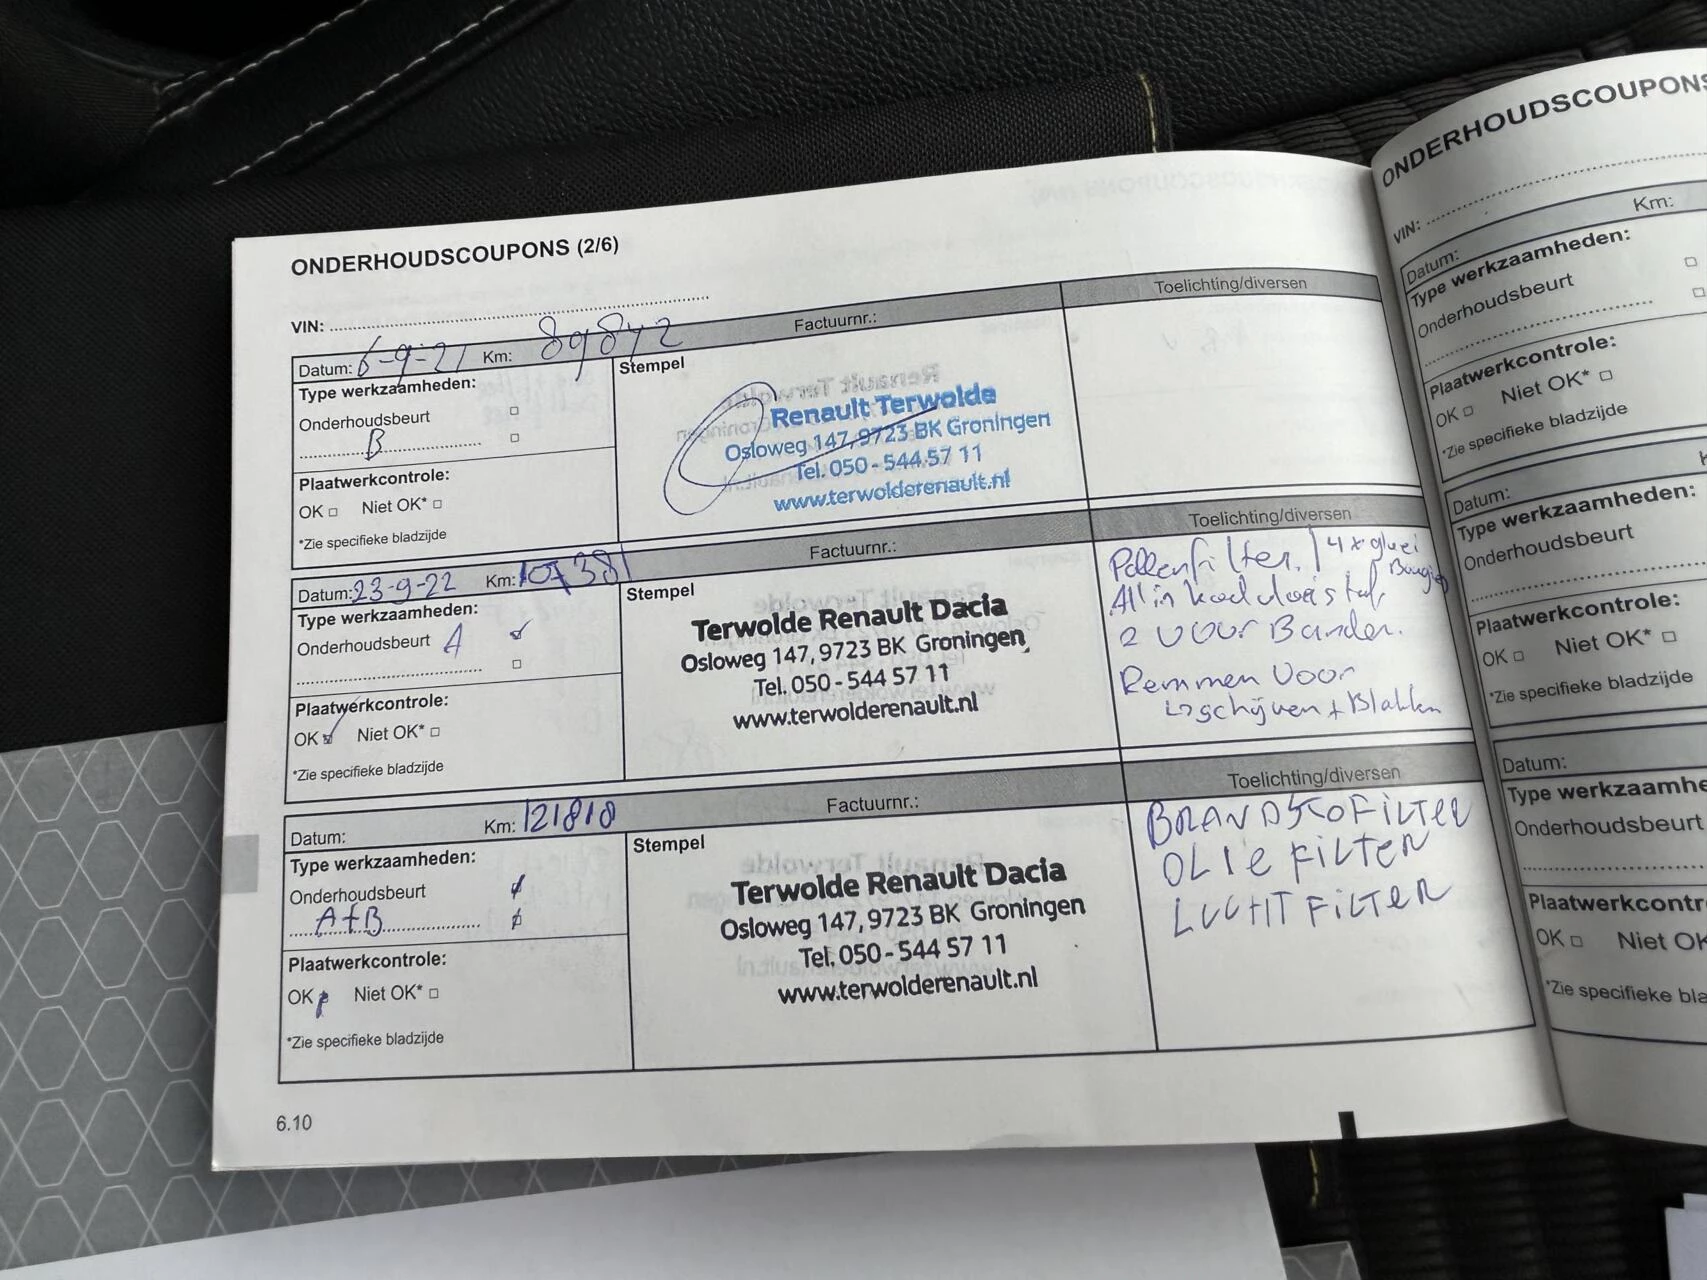 ONDERHOUDSCOUPONS (2/6)
VIN:
Datum: 6-9-21 Km: 89842 Factuurnr.: Toelichting/diversen
Type werkzaamheden:
Onderhoudsbeurt
B
Plaatwerkcontrole:
OK Niet OK*
*Zie specifieke bladzijde
Stempel
Renault Terwolde
Osloweg 147, 9723 BK Groningen
Tel. 050 - 544 57 11
www.terwolderenault.nl
Datum: 23-9-22 Km: 107381 Factuurnr.: Toelichting/diversen
Type werkzaamheden:
Onderhoudsbeurt A
Plaatwerkcontrole:
OK Niet OK*
*Zie specifieke bladzijde
Stempel
Terwolde Renault Dacia
Osloweg 147, 9723 BK Groningen
Tel. 050 - 544 57 11
www.terwolderenault.nl
Pollenfilter. 4x gloei
Bougies
2 voor Banden.
Remmen voor
schijven + Blokken
Datum: Km: 121818 Factuurnr.: Toelichting/diversen
Type werkzaamheden:
Onderhoudsbeurt
A+B
Plaatwerkcontrole:
OK Niet OK*
*Zie specifieke bladzijde
Stempel
Terwolde Renault Dacia
Osloweg 147, 9723 BK Groningen
Tel. 050 - 544 57 11
www.terwolderenault.nl
BRANDSTOFFILTER
OLIE FILTER
LUCHT FILTER
6.10
ONDERHOUDSCOUPONS
VIN:
Datum: Km:
Type werkzaamheden:
Onderhoudsbeurt
Plaatwerkcontrole:
OK Niet OK*
*Zie specifieke bladzijde
Datum:
Type werkzaamheden:
Onderhoudsbeurt
Plaatwerkcontrole:
OK Niet OK*
*Zie specifieke bladzijde
Datum:
Type werkzaamhe
Onderhoudsbeurt
Plaatwerkcontr
OK Niet OK
*Zie specifieke bla